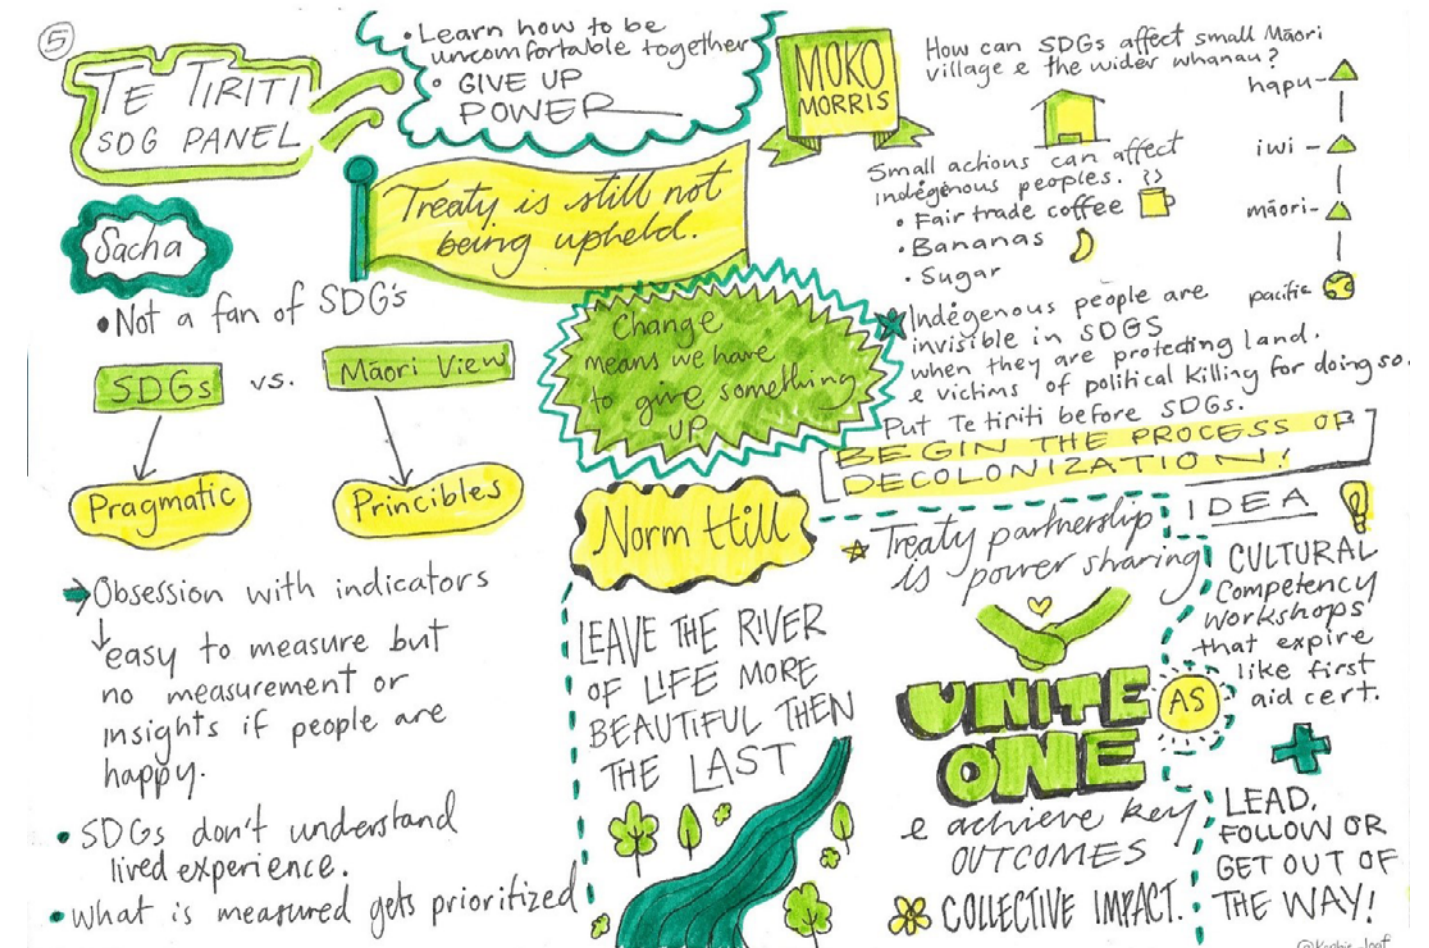 5
TE TIRITI
SDG PANEL
• Learn how to be
uncomfortable together
• GIVE UP
POWER
Treaty is still not
being upheld.
Sacha
• Not a fan of SDG's
SDGs vs. Māori View
Pragmatic
Princibles
Obsession with indicators
easy to measure but
no measurement or
insights if people are
happy.
• SDGs don't understand
lived experience.
• What is measured gets prioritized
Change
means we have
to give something
UP
MOKO
MORRIS
How can SDGs affect small Māori
village e the wider whanau?
hapu
iwi
māori
pacific
Small actions can affect
indégenous peoples.
• Fair trade coffee
• Bananas
• Sugar
Indégenous people are
invisible in SDGS
when they are protecting land.
e victims of political killing for doing so.
Put Te tiriti before SDGs.
BEGIN THE PROCESS OF
DECOLONIZATION!
Norm Hill
LEAVE THE RIVER
OF LIFE MORE
BEAUTIFUL THEN
THE LAST
Treaty partnership
is power sharing
UNITE
AS
ONE
e achieve key
OUTCOMES
COLLECTIVE IMPACT.
IDEA
CULTURAL
Competency
Workshops
that expire
like first
aid cert.
+
LEAD,
FOLLOW OR
GET OUT OF
THE WAY!